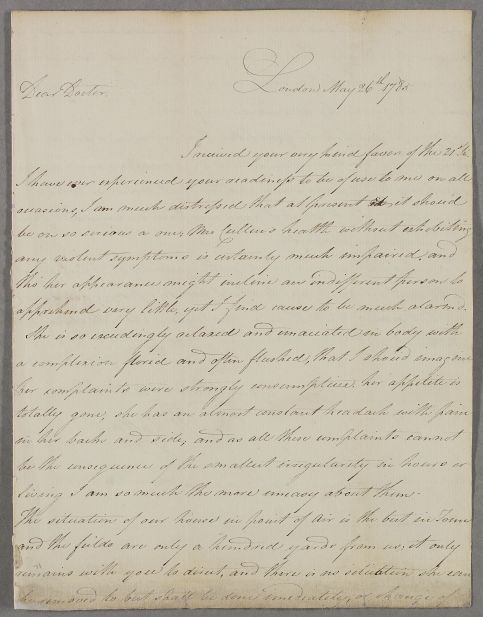 London May 26th 1785
Dear Doctor,
I received your very kind favor of the 21st
I have ever experienced your readiness to be of use to me on all
occasions, I am much distressed that at present it should
be on so serious a one, Mrs Cullen's health without exhibiting
any violent symptoms is certainly much impaired, and
tho her appearance might incline an indifferent person to
apprehend very little, yet I find cause to be much alarmd.
She is so exceedingly relaxed and emaciated in body with
a complexion florid and often flushed, that I should imagine
her complaints were strongly consumptive. her appetite is
totally gone, she has an almost constant headach with pain
in her back and side, and as all these complaints cannot
be the consequence of the smallest irregularity in hours or
living I am so much the more uneasy about them.
The situation of our house in point of Air is the best in Town
and the fields are only a hundred yards from us, it only
remains with you to direct, and there is no situation she can
be removed to but shall be done immediately, or change of